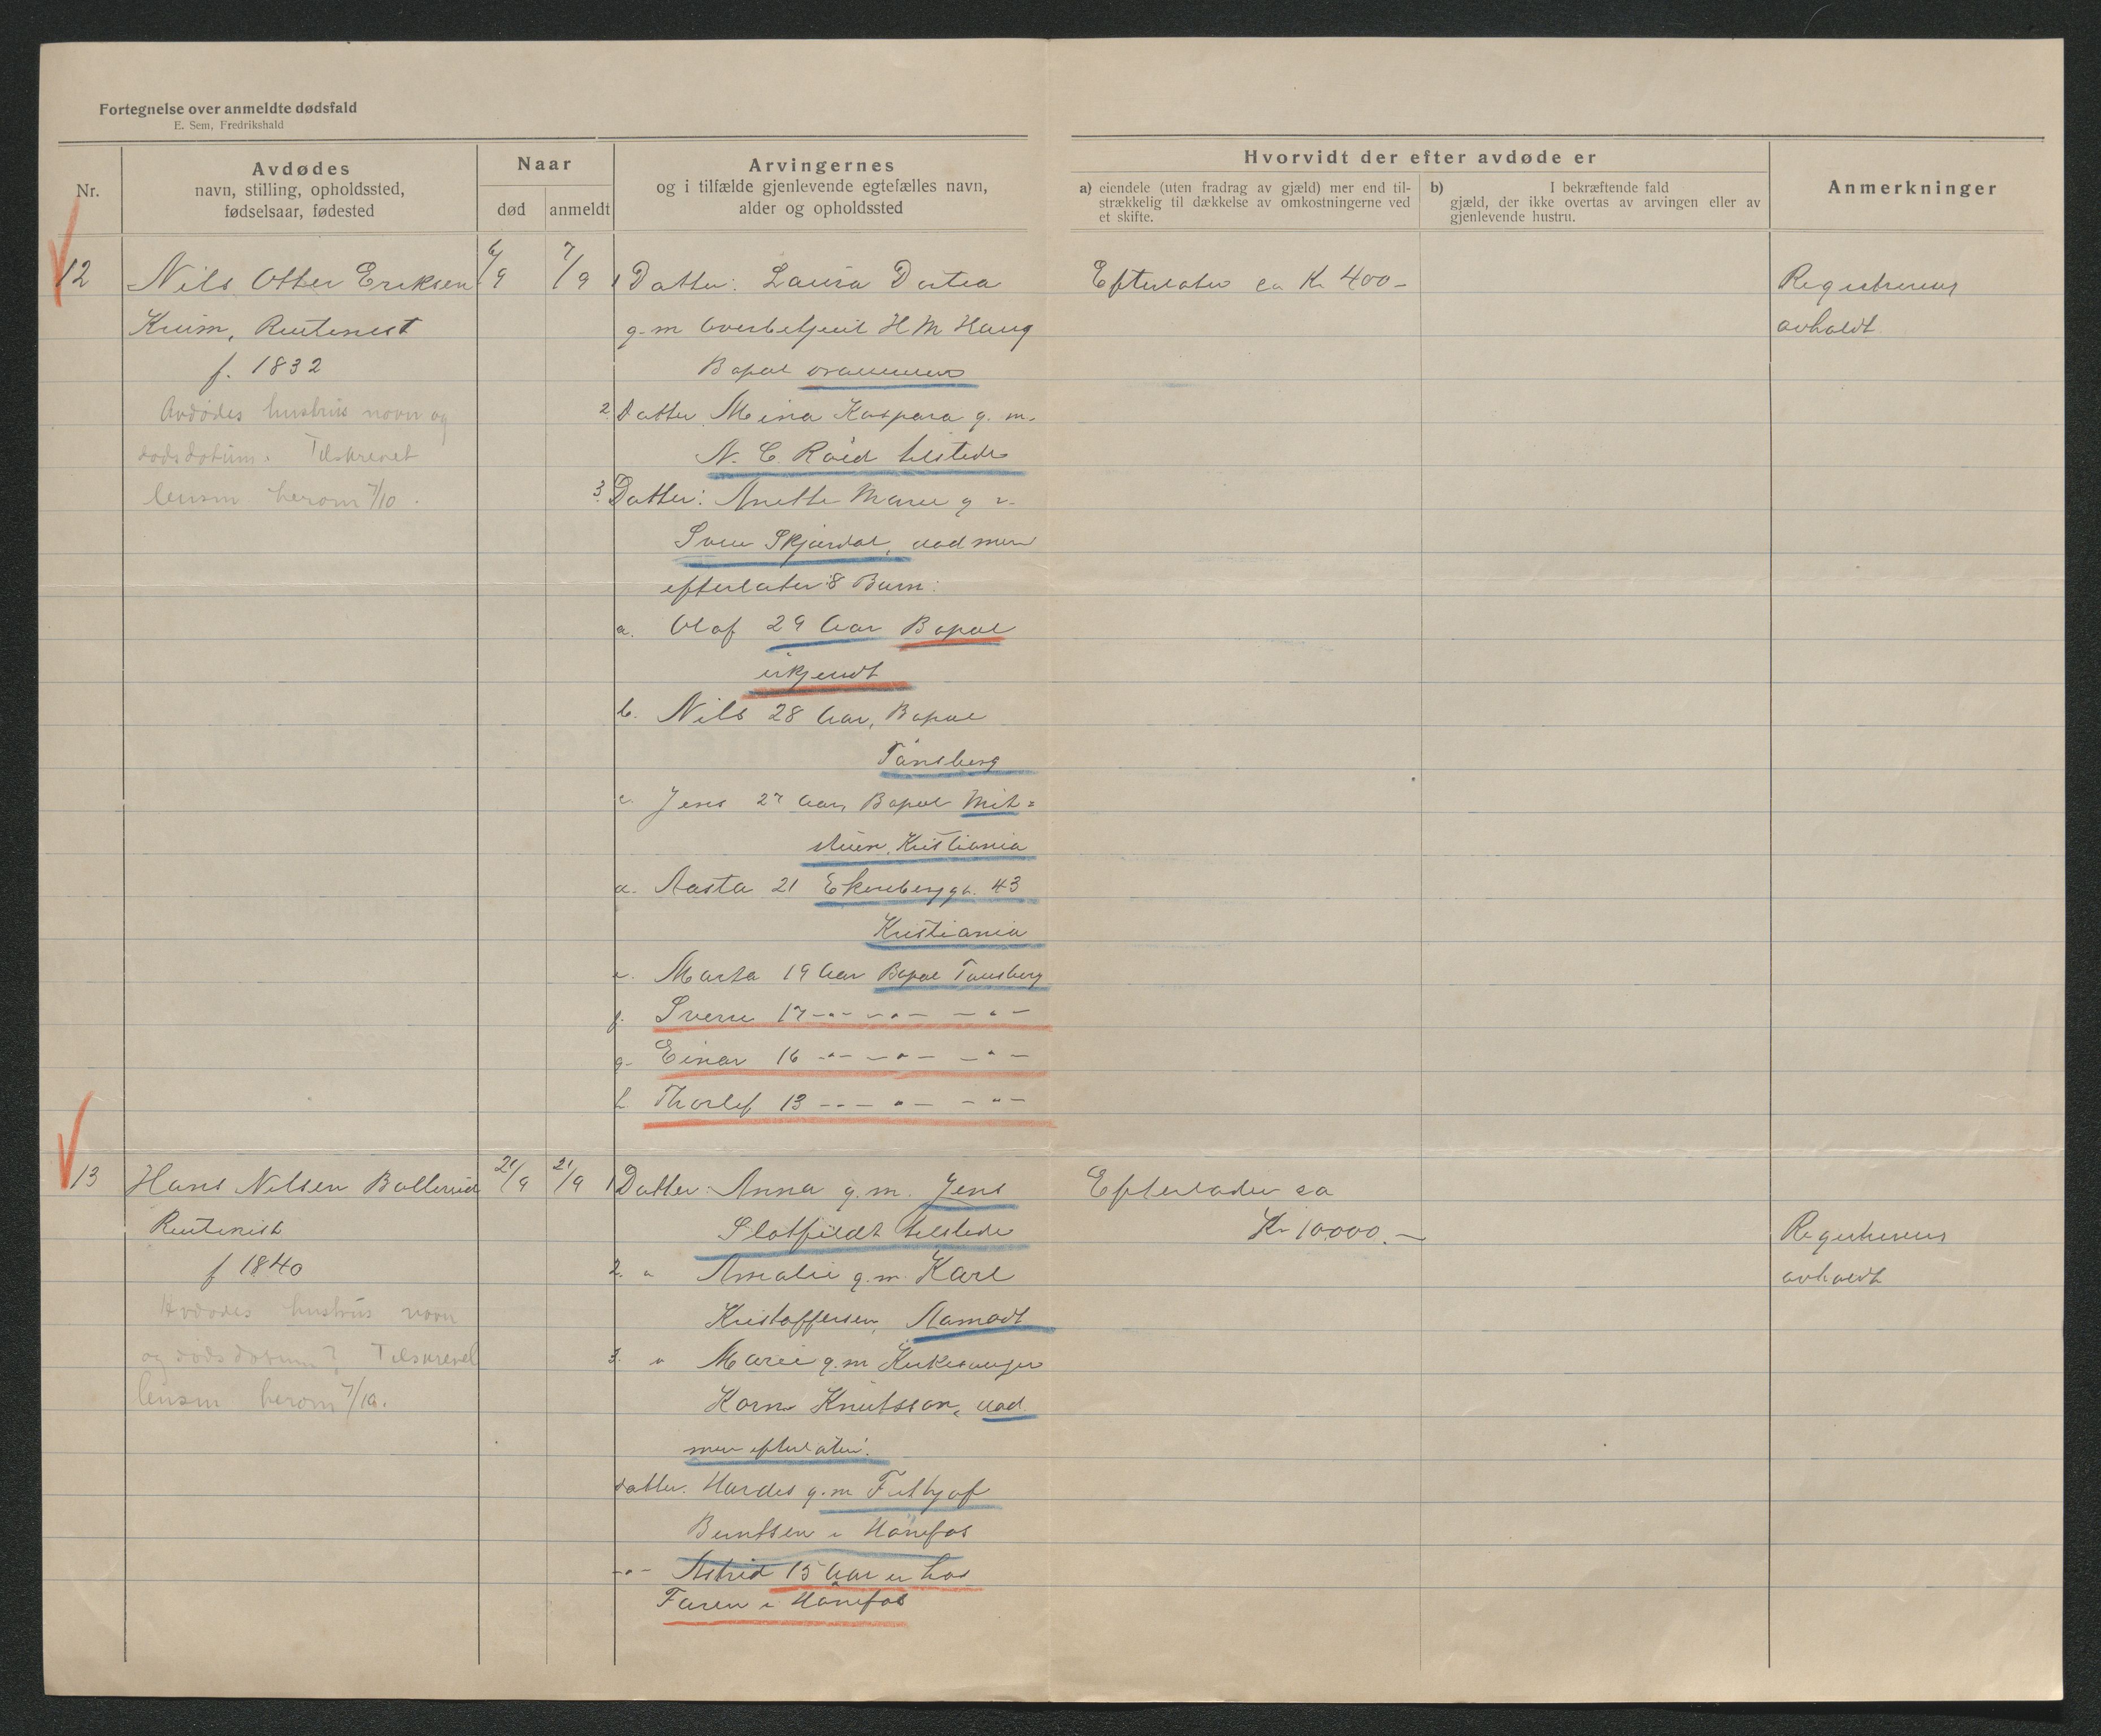 Fortegnelse over anmeldte dødsfald
E. Sem, Fredrikshald
Nr.
Avdødes
navn, stilling, opholdssted,
fødselsaar, fødested
Naar
død
anmeldt
Arvingernes
og i tilfælde gjenlevende egtefælles navn,
alder og opholdssted
Hvorvidt der efter avdøde er
a) eiendele (uten fradrag av gjæld) mer end til-
strækkelig til dækkelse av omkostningerne ved
et skifte.
b) I bekræftende fald
gjæld, der ikke overtas av arvingen eller av
gjenlevende hustru.
Anmerkninger
12
Nils Otter Eriksen
Kruim, Rentenist
f. 1832
Avdødes hustrus navn og
dødsdatum. Tilskrevet
lensm. herom 7/10.
6/9
7/9
1 Datter: Laura Dortea
g. m Overbetjent H M Haug
Bopæl Drammen
2. Datter Mina Kaspara g. m.
N. C. Røed tilstede
3. Datter: Anette Marie g
Sven Skjærdal, død men
efterlater 8 Barn:
a. Olaf 29 Aar Bopæl
ukjendt
b. Nils 28 Aar, Bopæl
Tønsberg
c. Jens 27 Aar, Bopæl Mid=
stuen, Kristiania
d. Aasta 21 Ekebergg. 43
Kristiania
e. Marta 19 Aar Bopæl Tønsberg
f. Sverre 17 -"- -"- -"-
g. Einar 16 -"- -"- -"-
h. Thorlef 13 -"- -"- -"-
Efterlater ca Kr 400-
Registrering
avholdt
13
Hans Nilsen Bollerud
Rentenist
f 1840
Avdødes hustrus navn
og dødsdatum? Tilskrevet
lensm herom 7/10.
21/9
21/9
1 Datter: Anna g. m. Jens
Slotfeldt tilstede
2. " Amalie g. m. Karl
Kristoffersen, Aamodt
3. " Marie g. m Kirkesanger
Knutsson, død
men efterlater:
datter. Hardis g. m Frithjof
Berntsen i Hønefos
-"- Astrid 15 Aar er hos
Faren i Hønefos
Efterlader ca
Kr 10000.-
Registrering
avholdt